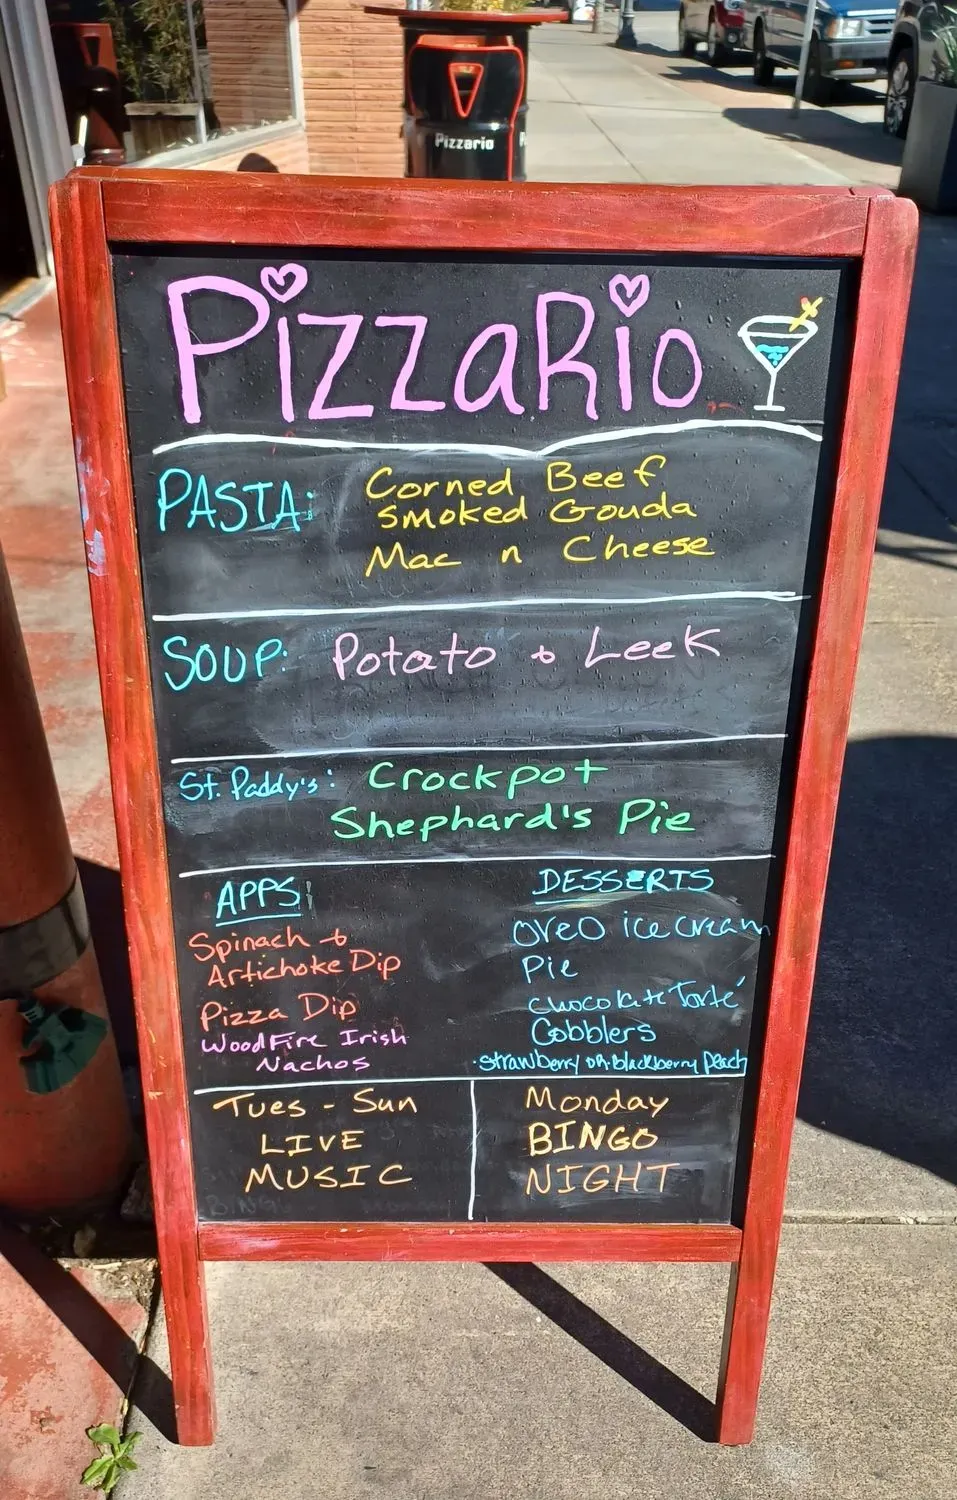 Pizzario
PizzaRio
PASTA: Corned Beef
Smoked Gouda
Mac n Cheese
SOUP: Potato & Leek
St. Paddy's: Crockpot
Shephard's Pie
APPS:
Spinach &
Artichoke Dip
Pizza Dip
WoodFire Irish
Nachos
DESSERTS
Oreo ice cream
Pie
Chocolate Torté
Cobblers
·Strawberry or Blackberry Peach
Tues - Sun
LIVE
MUSIC
Monday
BINGO
NIGHT